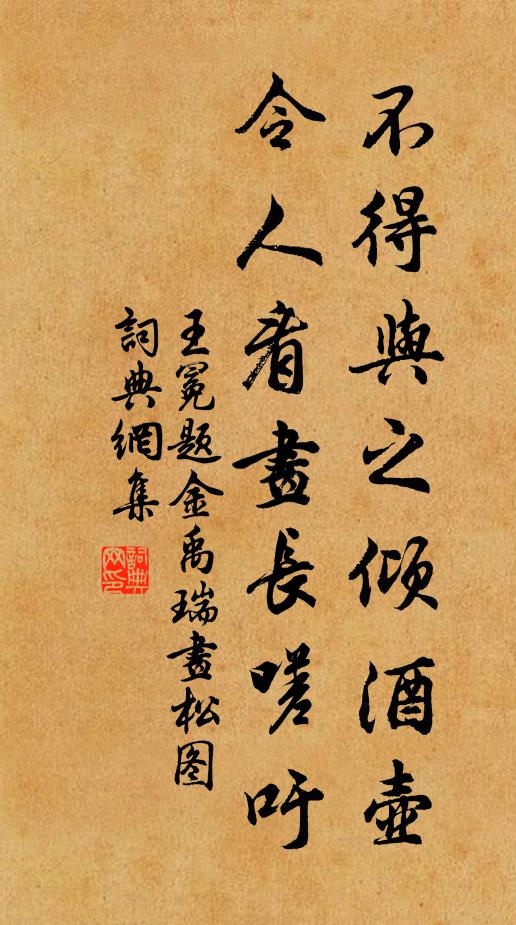 不得與之傾酒壺
令人看畫長嗟吁
王冕题金禹瑞畫松图
詞典網集
詞典網印